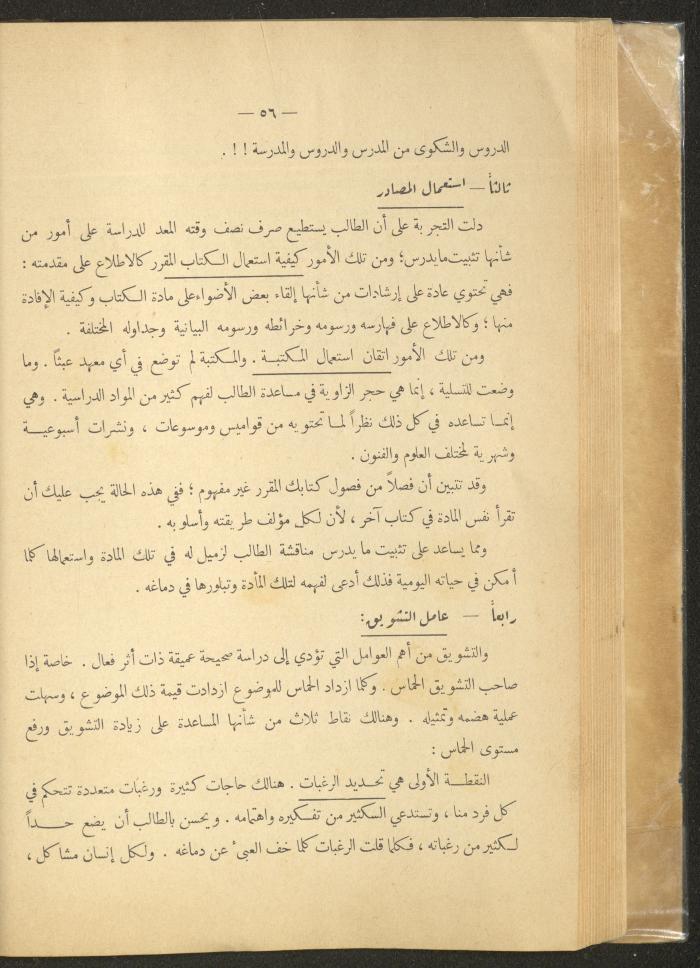 — ٥٦ —
الدروس والشكوى من المدرس والدروس والمدرسة ! ! .
ثالثاً — استعمال المصادر
دلت التجربة على أن الطالب يستطيع صرف نصف وقته المعد للدراسة على أمور من
شأنها تثبيت ما يدرس؛ ومن تلك الأمور كيفية استعمال الكتاب المقرر كالاطلاع على مقدمته :
فهي تحتوي عادة على إرشادات من شأنها إلقاء بعض الأضواء على مادة الكتاب وكيفية الإفادة
منها ؛ وكالاطلاع على فهارسه ورسومه وخرائطه ورسومه البيانية وجداوله المختلفة .
ومن تلك الأمور اتقان استعمال المكتبة . والمكتبة لم توضع في أي معهد عبثاً . وما
وضعت للتسلية ، إنما هي حجر الزاوية في مساعدة الطالب لفهم كثير من المواد الدراسية . وهي
إنما تساعده في كل ذلك نظراً لما تحتويه من قواميس وموسوعات ، ونشرات أسبوعية
وشهرية لمختلف العلوم والفنون .
وقد تتبين أن فصلاً من فصول كتابك المقرر غير مفهوم ؛ ففي هذه الحالة يجب عليك أن
تقرأ نفس المادة في كتاب آخر ، لأن لكل مؤلف طريقته وأسلوبه .
ومما يساعد على تثبيت ما يدرس مناقشة الطالب لزميل له في تلك المادة واستعمالها كلما
أمكن في حياته اليومية فذلك أدعى لفهمه لتلك المادة وتبلورها في دماغه .
رابعاً — عامل التشويق :
والتشويق من أهم العوامل التي تؤدي إلى دراسة صحيحة عميقة ذات أثر فعال . خاصة إذا
صاحب التشويق الحماس . وكلما ازداد الحماس للموضوع ازدادت قيمة ذلك الموضوع ، وسهلت
عملية هضمه وتمثيله . وهنالك نقاط ثلاث من شأنها المساعدة على زيادة التشويق ورفع
مستوى الحماس :
النقطة الأولى هي تحديد الرغبات . هنالك حاجات كثيرة ورغبات متعددة تتحكم في
كل فرد منا ، وتستدعي الكثير من تفكيره واهتمامه . ويحسن بالطالب أن يضع حداً
لكثير من رغباته ، فكلما قلت الرغبات كلما خف العبئ عن دماغه . ولكل إنسان مشاكل ،